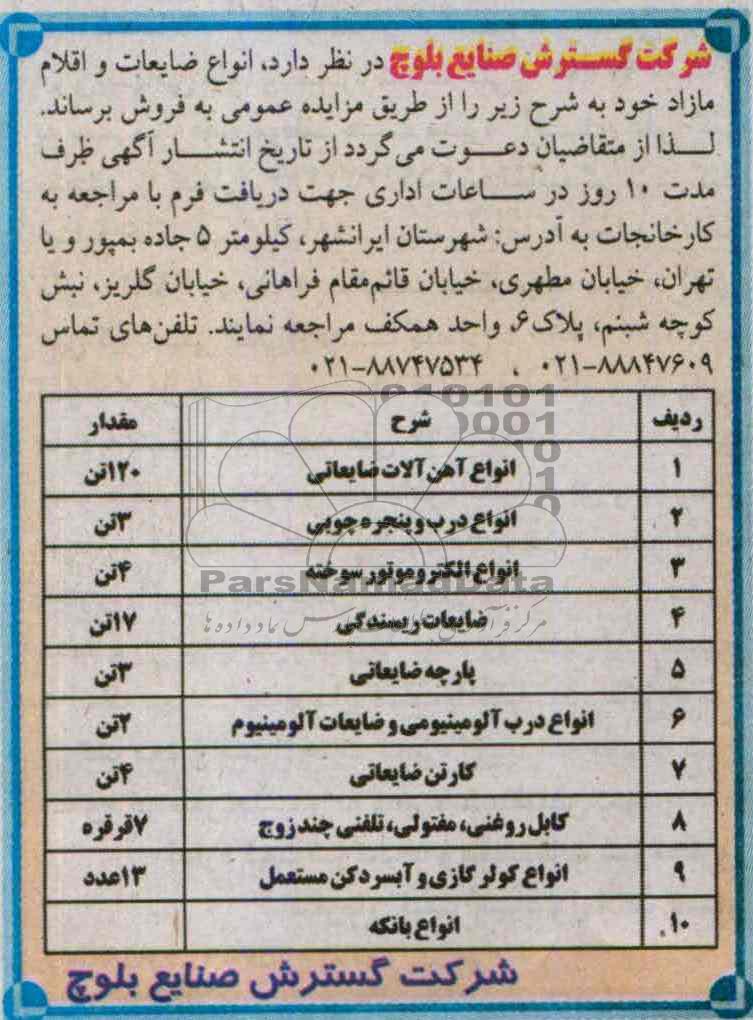 شرکت گسترش صنایع بلوچ در نظر دارد، انواع ضایعات و اقلام
مازاد خود به شرح زیر را از طریق مزایده عمومی به فروش برساند.
لذا از متقاضیان دعوت می‌گردد از تاریخ انتشار آگهی ظرف
مدت ۱۰ روز در ساعات اداری جهت دریافت فرم با مراجعه به
کارخانجات به آدرس: شهرستان ایرانشهر، کیلومتر ۵ جاده بمپور و یا
تهران، خیابان مطهری، خیابان قائم‌مقام فراهانی، خیابان گلریز، نبش
کوچه شبنم، پلاک ۶، واحد همکف مراجعه نمایند. تلفن‌های تماس
۰۲۱-۸۸۸۴۷۶۰۹ ، ۰۲۱-۸۸۷۴۷۵۳۴
ردیف شرح مقدار
۱ انواع آهن آلات ضایعاتی ۱۲۰تن
۲ انواع درب و پنجره چوبی ۳تن
۳ انواع الکتروموتور سوخته ۴تن
۴ ضایعات ریسندگی ۱۷تن
۵ پارچه ضایعاتی ۳تن
۶ انواع درب آلومینیومی و ضایعات آلومینیوم ۲تن
۷ کارتن ضایعاتی ۴تن
۸ کابل روغنی، مفتولی، تلفنی چند زوج ۷قرقره
۹ انواع کولر گازی و آبسردکن مستعمل ۱۳عدد
۱۰ انواع بانکه
شرکت گسترش صنایع بلوچ
ParsNamadData